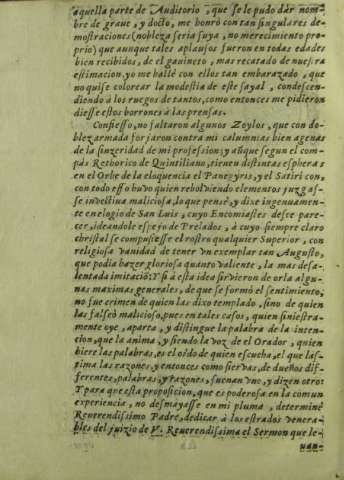 aquella parte de Auditorio, que se le pudo dar nom-
bre de graue, y docto, me honrò con tan singulares de-
mostraciones (nobleza seria suya, no merecimiento pro-
prio) que aunque tales aplausos fueron en todas edades
bien recibidos, de el gauineto, mas recatado de nuestra
estimacion, yo me hallè con ellos tan embarazado, que
no quise colorear la modestia de este sayal, condescen-
diendo à los ruegos de tantos, como entonces me pidieron
diesse estos borrones à las prensas.
Confiesso, no faltaron algunos Zoylos, que con do-
blez armado forjaron contra mi calumnias bien agenas
de la sinzeridad de mi profession; y assi que segun el com-
pàs Rethorico de Quintiliano, tienen distintas espheras
en el Orbe de la eloquencia el Panegyris, y el Satiri con,
con todo esso huvo quien reboluiendo elementos juzgas-
se invectiua maliciosa, lo que pensè, y dixe ingenuamente
en elogio de San Luis, cuyo Encomiastes desee pare-
cer, ideandole espejo de Prelados, à cuyo siempre claro
christal se compusiesse el rostro qualquier Superior, con
religiosa vanidad de tener vn exemplar tan Augusto,
que podia hazer gloriosa quanto valiente, la mas desa-
lentada imitaciõ: Y si à esta idea siruieron de orla algu-
nas maximas generales, de que se formò el sentimiento,
no fue crimen de quien las dixo templado, sino de quien
las falseò malicioso, pues en tales casos, quien siniestra-
mente oye, aparta, y distingue la palabra de la inten-
cion, que la anima, y siendo la voz de el Orador, quien
hiere las palabras, es el oido de quien escucha, el que las-
tima las razones, y entonces como siervas, de dueños dif-
ferentes, palabras, y razones, suenan vno, y dizen otro:
Y para que esta proposicion, que es poderosa en la comun
experiencia, no desmayasse en mi pluma, determinè
Reuerendissimo Padre, dedicar à los estrados venera-
bles del juizio de V. Reuerendissima el Sermon que le-
uan-